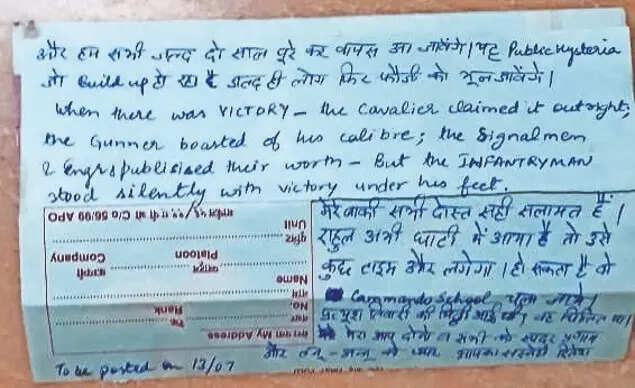 और हम सभी जल्द दो साल पूरे कर वापस आ जावेंगे। यह Public Hysteria
जो Build up हो रहा है जल्द ही लोग फिर फौजी को भूल जावेंगे।
When there was VICTORY – the Cavalier claimed it outright,
the Gunner boasted of his calibre; the Signalmen
& Engrs publisised their worth – But the INFANTRYMAN
stood silently with victory under his feet.
मेरे बाकी सभी दोस्त सही सलामत हैं।
राहुल अभी घाटी में आया है तो उसे
कुछ टाइम और लगेगा। हो सकता है वो
Commando School चला जाये।
की चिट्ठी आई थी। वह चिंतित था।
मेरा आप दोनो व सभी को सादर प्रणाम
और को प्यार आपका
To be posted on 13/07
मेरा पता My Address
No. Rank
नाम
Name
प्लाटून कम्पनी
Platoon Company
यूनिट
Unit
56/99 APO